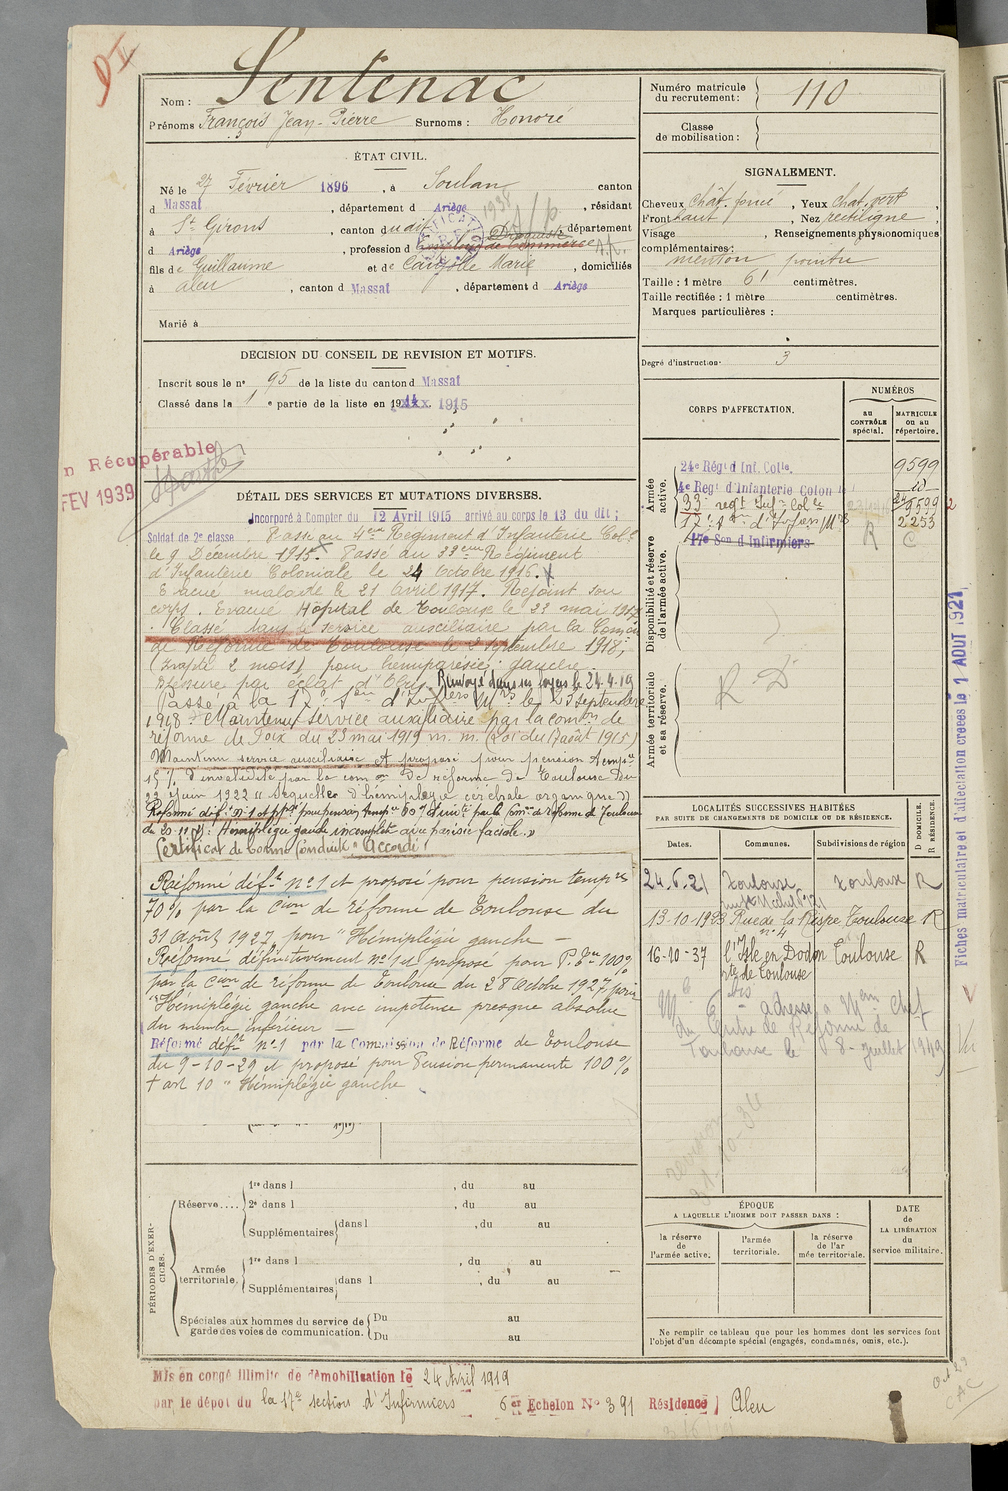 Sentenac
Nom :
Prénoms François Jean-Pierre Surnoms : Honoré
ÉTAT CIVIL.
Né le 27 Février 1896, à Soulan canton
d Massat, département d Ariège, résidant
à St Girons, canton dudit, département
d Ariège, profession d Employé de Commerce Droguiste
fils de Guillaume et de Caujolle Marie, domiciliés
à Aleu, canton d Massat, département d Ariège
Marié à
DECISION DU CONSEIL DE REVISION ET MOTIFS.
Inscrit sous le no 95 de la liste du canton d Massat
Classé dans la 1e partie de la liste en 1915
n Récupérable
FEV 1939
DÉTAIL DES SERVICES ET MUTATIONS DIVERSES.
Incorporé à Compter du 12 Avril 1915 arrivé au corps le 13 du dit ;
Soldat de 2e classe. Passé au 4eme Régiment d'Infanterie Colle
le 9 Décembre 1915. Passé au 33eme Régiment
d'Infanterie Coloniale le 24 Octobre 1916.
Evacué malade le 21 Avril 1917. Rejoint son
corps. Evacué Hôpital de Toulouse le 23 mai 1917
Classé dans le service auxiliaire par la Comon
de Réforme de Toulouse le 2 septembre 1918,
(inapte 2 mois) pour hémiparésie gauche.
Blessure par éclat d'Obus. Renvoyé dans ses foyers le 24.4.19
Passé à la 17e Son d'Infiers Mres le 23 septembre
1918 Maintenu service auxiliaire par la comon de
réforme de Foix du 23 mai 1919 m. m. (Loi du 17 août 1915)
Maintenu service auxiliaire et proposé pour pension temp.
15 % d'invalidité par la com on de réforme de Toulouse du
22 Juin 1922 "séquelles d'hémiplégie cérébrale organique"
Réformé déf. n°1 et pposé pour pension temp. 60 % d'invté par la Comn de réforme de Toulouse
Hémiplégie gauche incomplète avec parésie faciale."
Certificat de bonne Conduite "Accordé"
Réformé déft no 1 et proposé pour pension tempres
70 % par la Cion de réforme de Toulouse du
31 août 1927 pour "Hémiplégie gauche —
Réformé définitivement no 1 et proposé pour P. Pte 100 %
par la Cion de réforme de Toulouse du 28 Octobre 1927 pour
"Hémiplégie gauche avec impotence presque absolue
du membre inférieur —
Réformé déft no 1 par la Commission de Réforme de Toulouse
du 9-10-29 et proposé pour Pension permanente 100 %
+ art 10 "Hémiplégie gauche
PÉRIODES D'EXERCICES.
Réserve....
1re dans l , du au
2e dans l , du au
Supplémentaires dans l , du au
Armée territoriale.
1re dans l , du au
Supplémentaires dans l , du au
Spéciales aux hommes du service de garde des voies de communication.
Du au
Du au
Mis en congé illimité de démobilisation le 24 Avril 1919
par le dépôt du la 17e section d'Infirmiers 6er Echelon No 391 Résidence Aleu
Numéro matricule du recrutement : 110
Classe de mobilisation :
SIGNALEMENT.
Cheveux chât. foncé, Yeux chat. vert,
Front haut, Nez rectiligne,
Visage , Renseignements physionomiques
complémentaires :
menton pointu
Taille : 1 mètre 61 centimètres.
Taille rectifiée : 1 mètre centimètres.
Marques particulières :
Degré d'instruction 3
CORPS D'AFFECTATION.
NUMÉROS
au CONTRÔLE spécial.
MATRICULE ou au répertoire.
Armée active.
24e Régt d'Inf. Colle. 9599
4e Regt d'Infanterie Colon le
33 regt Infie Colle 9599
17e Son d'Infiers Mres R 2253
17e Son d'Infirmiers C
Disponibilité et réserve de l'armée active.
Armée territoriale et sa réserve.
R. D
LOCALITÉS SUCCESSIVES HABITÉES
PAR SUITE DE CHANGEMENTS DE DOMICILE OU DE RÉSIDENCE.
Dates. Communes. Subdivisions de région
D DOMICILE. R RÉSIDENCE.
24.6.21 Toulouse Toulouse R
13-10-1923 Rue de la Respe Toulouse R
no 4
16-10-37 l'Isle en Dodon Toulouse R
rte de Toulouse
adressé à Mr Chef
du Centre de Réforme de
Toulouse le 8 - Juillet 1949
revision
31-10-34
ÉPOQUE
A LAQUELLE L'HOMME DOIT PASSER DANS :
la réserve de l'armée active.
l'armée territoriale.
la réserve de l'ar mée territoriale.
DATE de LA LIBÉRATION du service militaire.
Ne remplir ce tableau que pour les hommes dont les services font
l'objet d'un décompte spécial (engagés, condamnés, omis, etc.).
Fiches matriculaire et d'affectation créées le 1 AOUT 1921